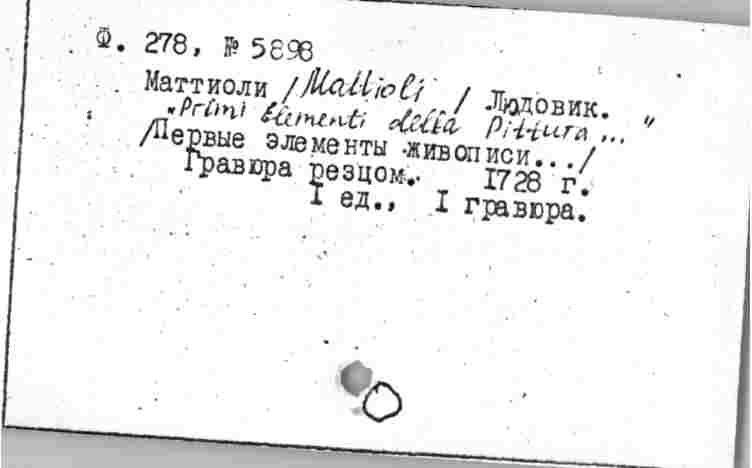 Ф. 278, № 5898
Маттиоли /Mattioli / Людовик.
"Primi Elementi della Pittura..."
/Первые элементы живописи.../
Гравюра резцом. I728 г.
I ед., I гравюра.